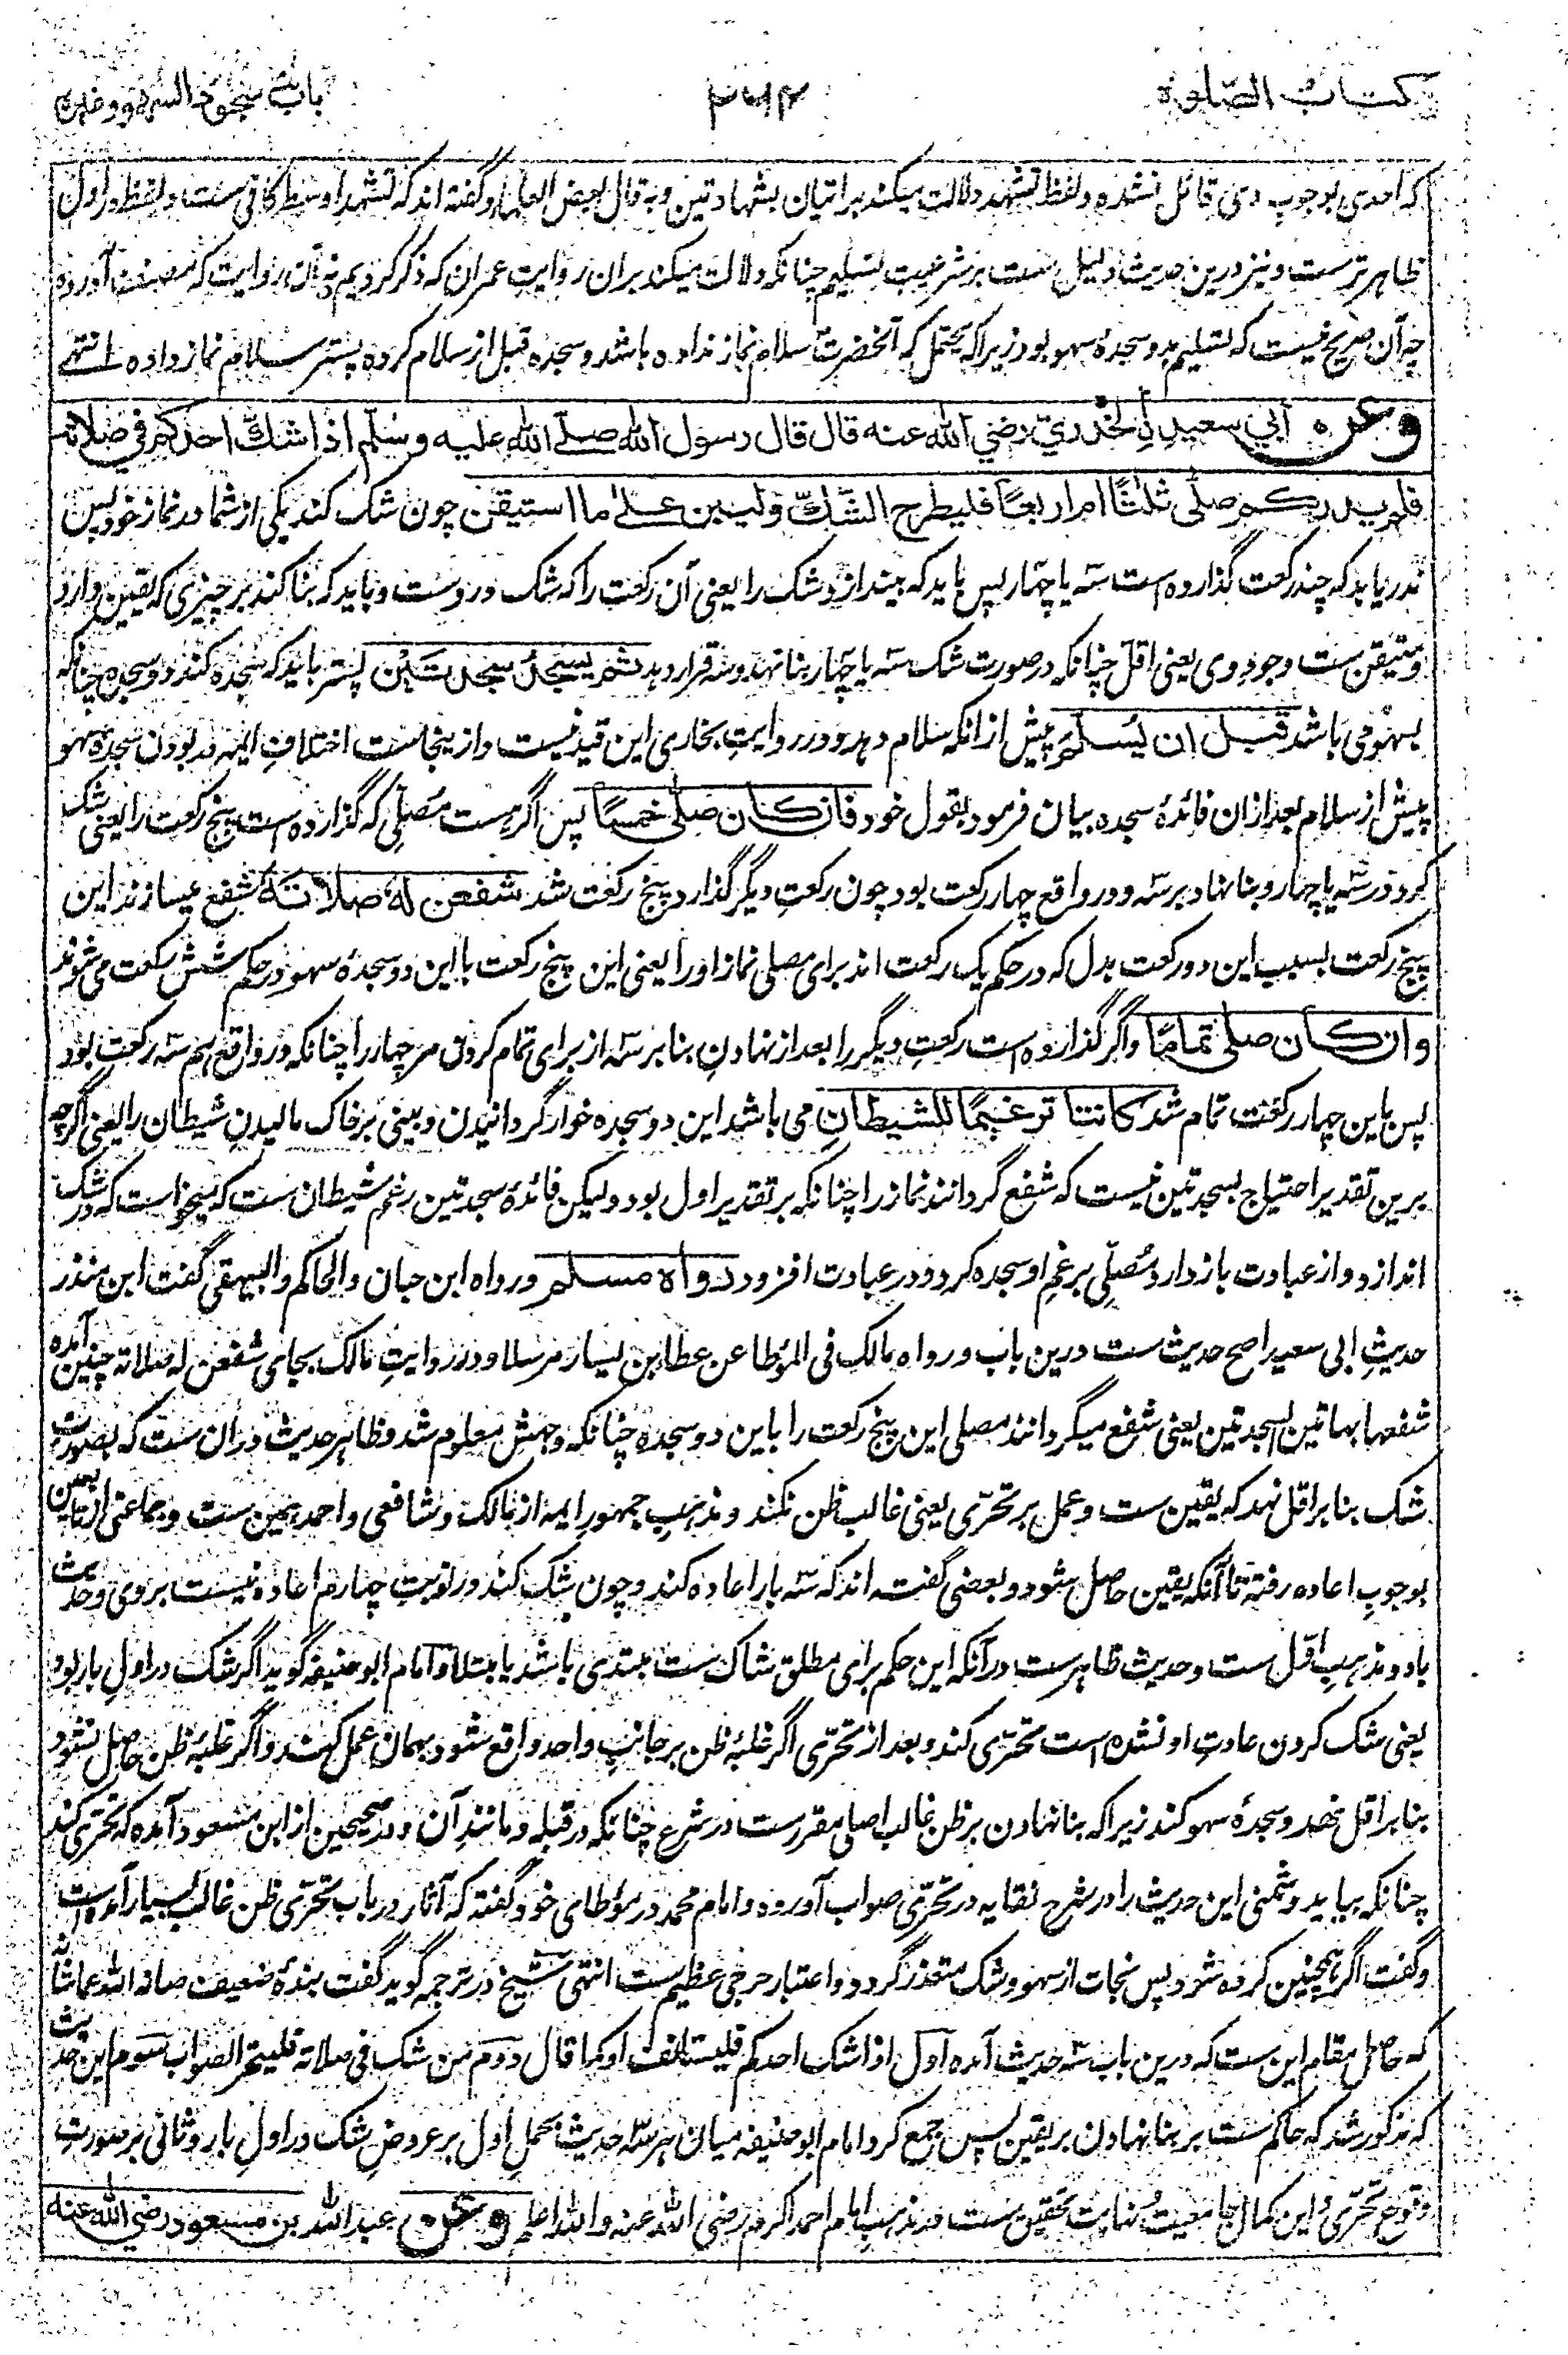 كتاب الصّلوة
باب سجود السهو وغيره
که احدی بوجوب وی قائل نشده ولفظ تشهد دلالت میکند بر اتیان بشهادتین وبه قال بعض العلماء وگفته اند که تشهد اوسط کافی ست ولفظ در اول
ظاهر ترست ونیز درین حدیث دلیل ست بر شرعیت تسلیم چنانکه دلالت میکند بران روایتِ عمران که ذکر کردیم نه آن روایت که مصنف آورده
چه آن صریح نیست که تسلیم بدو سجدهٔ سهو بود زیراکه یحتمل که آنحضرت سلام نماز نداده باشد و سجده قبل از سلام کرده پستر سلام نماز داده انتهے
وعن أبي سعيدٍ الخدريّ رضي الله عنه قال قال رسول الله صلے الله عليه وسلم اذا شك احدكم في صلاته
فلم يدركم صلّى ثلثًا ام اربعًا فليطرح الشكّ وليبن على ما استيقن چون شک کند یکی از شما در نماز خود پس
ندریابد که چند رکعت گذارده است سه یا چهار پس باید که بیندازد شک را یعنی آن رکعت را که شک دروست وباید که بنا کند بر چیزی که یقین دارد
ومتیقن ست وجودِ وی یعنی اقل چنانکه در صورت شک سه یا چهار بنا نهد وسه قرار دهد ثم يسجدُ سجدتَين پستر باید که سجده کند دو سجده چنانکه
بسهو می باشد قبل ان يُسلّم پیش از انکه سلام دهد ودر روایتِ بخاری این قید نیست واز ینجاست اختلافِ ایمه در بودن سجدهٔ سهو
پیش از سلام بعد ازان فائدهٔ سجده بیان فرمود بقول خود فان كان صلّى خمسًا پس اگر هست مُصلّی که گذارده است پنج رکعت را یعنی شک
کرد در سه یا چهار وبنا نهاد بر سه ودر واقع چهار رکعت بود چون رکعتِ دیگر گذارد پنج رکعت شد شفعن لهٗ صلاتهٗ شفع میسازند این
پنج رکعت بسبب این دو رکعت بدل که در حکم یک رکعت اند برای مصلی نماز اورا یعنی این پنج رکعت با این دو سجدهٔ سهو در حکم شش رکعت می شوند
وان كان صلّى تمامًا واگر گذارده است رکعتِ دیگر را بعد از نهادنِ بنا بر سه از برای تمام کردن مر چهار را چنانکه در واقع هم سه رکعت بود
پس باین چهار رکعت تمام شد كانتا ترغيمًا للشيطان می باشد این دو سجده خوار گردانیدن وبینی بر خاک مالیدنِ شیطان را یعنی اگرچه
برین تقدیر احتیاج بسجدتین نیست که شفع گردانند نماز را چنانکه بر تقدیر اول بود ولیکن فائدهٔ سجدتین رغم شیطان ست که میخواست که در شک
اندازد واز عبادت باز دارد مُصلّی بر غمِ او سجده کرد ودر عبادت افزود رواه مسلم ورواه ابن حبان والحاکم والبیهقی گفت ابن منذر
حدیثِ ابی سعید اصح حدیث ست درین باب ورواه مالک فی المؤطا عن عطا بن یسار مرسلا ودر روایتِ مالک بجای شفعن له صلاته چنین آمده
شفعها بهاتین السجدتین یعنی شفع میگرداند مصلی این پنج رکعت را باین دو سجده چنانکه وجهش معلوم شد وظاهر حدیث دران ست که بصورت
شک بنا بر اقل نهد که یقین ست وعمل بر تحرّی یعنی غالب ظن نکند ومذهبِ جمهورِ ایمه از مالک وشافعی واحمد همین ست وجماعتی از تابعین
بوجوبِ اعاده رفته تا آنکه یقین حاصل شود وبعضی گفته اند که سه بار اعاده کند وچون شک کند در نوبتِ چهارم اعاده نیست بروی وحدیث
باد ومذهبِ اول ست وحدیث ظاهرست در آنکه این حکم برای مطلق شاک ست مبتدی باشد یا مبتلا وامام ابوحنیفه گوید اگر شک در اولِ بار بود
یعنی شک کردن عادتِ او نشده است تحرّی کند وبعد از تحرّی اگر غلبهٔ ظن بر جانبِ واحد واقع شود بهمان عمل کند واگر غلبهٔ ظن حاصل نشود
بنا بر اقل نهد وسجدهٔ سهو کند زیراکه بنا نهادن بر ظن غالب اصلی مقررست در شرع چنانکه در قبله ومانندِ آن ودر صحیحین از ابن مسعود آمده که تحرّی کند
چنانکه بیاید وشمنی این حدیث را در شرح نقایه در تحرّی صواب آورده وامام محمد در مؤطای خود گفته که آثار در باب تحرّی ظن غالب بسیار آمده است
وگفت اگر همچنین کرده نشود پس نجات از سهو وشک متعذر گردد واعتبار حرجی عظیم ست انتهی شیخ در ترجمه گوید گفت بندهٔ ضعیف صانه الله عما شانه
که حاصل مقام این ست که درین باب سه حدیث آمده اول اذا شک احدکم فلیستانف اوکما قال دوم من شک فی صلاته فلیتحر الصواب سوم این حدیث
که مذکور شد که حاکم ست بر بنا نهادن بر یقین پس جمع کرد امام ابوحنیفه میان هر سه حدیث بحملِ اول بر عروضِ شک در اولِ بار وثانی بر صورتِ
وقوع تحرّی واین کمال جامعیت ونهایت تحقیق ست ومذهب امام احمد اکرم رضی الله عنه والله اعلم وعن عبد الله بن مسعود رضي الله عنه